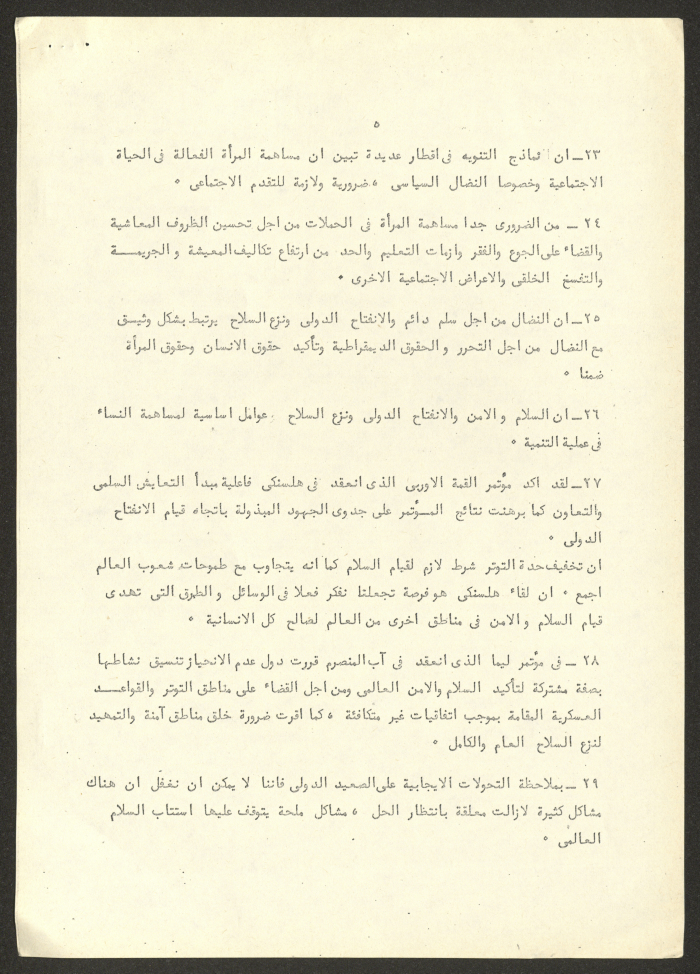 ٥
٢٣ــ ان نماذج التنويه فى اقطار عديدة تبين ان مساهمة المرأة الفعالة فى الحياة
الاجتماعية وخصوصا النضال السياسى ، ضرورية ولازمة للتقدم الاجتماعى ٠
٢٤ ــ من الضرورى جدا مساهمة المرأة فى الحملات من اجل تحسين الظروف المعاشية
والقضاء على الجوع والفقر وازمات التعليم والحد من ارتفاع تكاليف المعيشة و الجريمــــة
والتفسخ الخلقى والاعراض الاجتماعية الاخرى ٠
٢٥ــ ان النضال من اجل سلم دائم والانفتاح الدولى ونزع السلاح يرتبط بشكل وثيــق
مع النضال من اجل التحرر و الحقوق الديمقراطية وتأكيد حقوق الانسان وحقوق المرأة
ضمنا ٠
٢٦ــ ان السلام و الامن والانفتاح الدولى ونزع السلاح عوامل اساسية لمساهمة النساء
فى عملية التنمية ٠
٢٧ــ لقد اكد مؤتمر القمة الاوربى الذى انعقد فى هلسنكى فاعلية مبدأ التعايش السلمى
والتعاون كما برهنت نتائج المــؤتمر على جدوى الجهود المبذولة باتجاه قيام الانفتاح
الدولى ٠
ان تخفيف حدة التوتر شرط لازم لقيام السلام كما انه يتجاوب مع طموحات شعوب العالم
اجمع ٠ ان لقاء هلسنكى هو فرصة تجعلنا نفكر فعلا فى الوسائل و الطرق التى تهدى
قيام السلام و الامن فى مناطق اخرى من العالم لصالح كل الانسانية ٠
٢٨ ــ فى مؤتمر ليما الذى انعقد فى آب المنصرم قررت دول عدم الانحياز تنسيق نشاطها
بصفة مشتركة لتأكيد السلام والامن العالمى ومن اجل القضاء على مناطق التوتر والقواعــــد
العسكرية المقامة بموجب اتفاقيات غير متكافئة ، كما اقرت ضرورة خلق مناطق آمنة والتمهيد
لنزع السلاح العام والكامل ٠
٢٩ ــ بملاحظة التحولات الايجابية على الصعيد الدولى فاننا لا يمكن ان نغفل ان هناك
مشاكل كثيرة لازالت معلقة بانتظار الحل ، مشاكل ملحة يتوقف عليها استتاب السلام
العالمى ٠